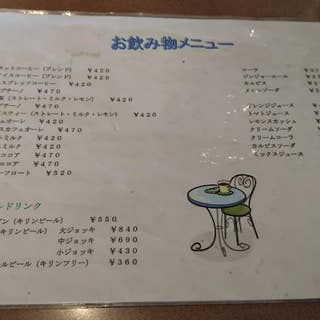 お飲み物メニュー
ットコーヒー (ブレンド) ¥420
イスコーヒー (ブレンド) ¥420
スプレッドコーヒー ¥420
プチーノ ¥470
茶 (ストレート・ミルク・レモン) ¥420
プチーノ ¥470
スティー (ストレート・ミルク・レモン) ¥420
ェオーレ ¥470
スカフェオーレ ¥470
トミルク ¥420
ミルク ¥420
ココア ¥470
ココア ¥470
ーフロート ¥520
ルドリンク
ビン (キリンビール) ¥550
(キリンビール) 大ジョッキ ¥840
中ジョッキ ¥690
小ジョッキ ¥430
ールビール (キリンフリー) ¥360
コーラ
ジンジャーエール
カルピス
メロンソーダ
オレンジジュース
トマトジュース
レモンスカッシュ
クリームソーダ
クリームコーラ
カルピスソーダ
ミックスジュース